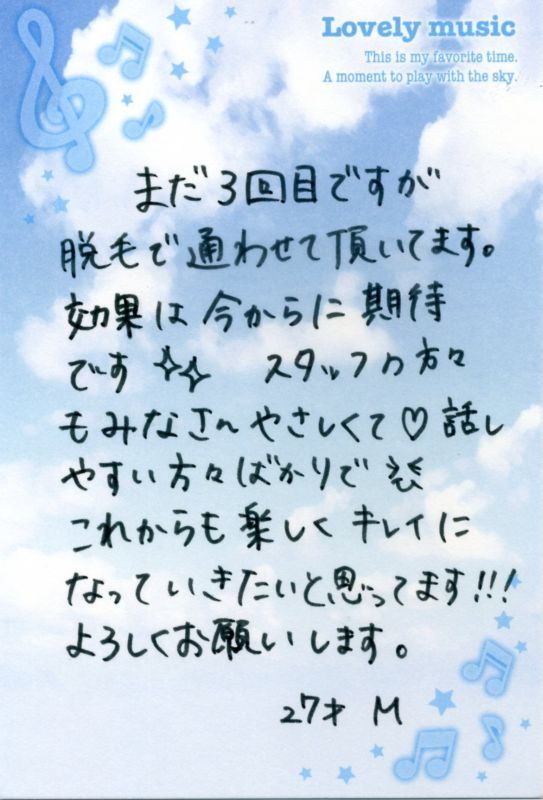 Lovely music
This is my favorite time.
A moment to play with the sky.
まだ3回目ですが
脱毛で通わせて頂いてます。
効果は今からに期待
です✧✧ スタッフの方々
もみなさんやさしくて♡話し
やすい方々ばかりで
これからも楽しくキレイに
なっていきたいと思ってます!!!
よろしくお願いします。
27才 M